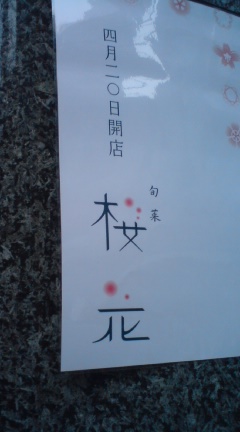 四月二〇日開店
旬菜
桜花